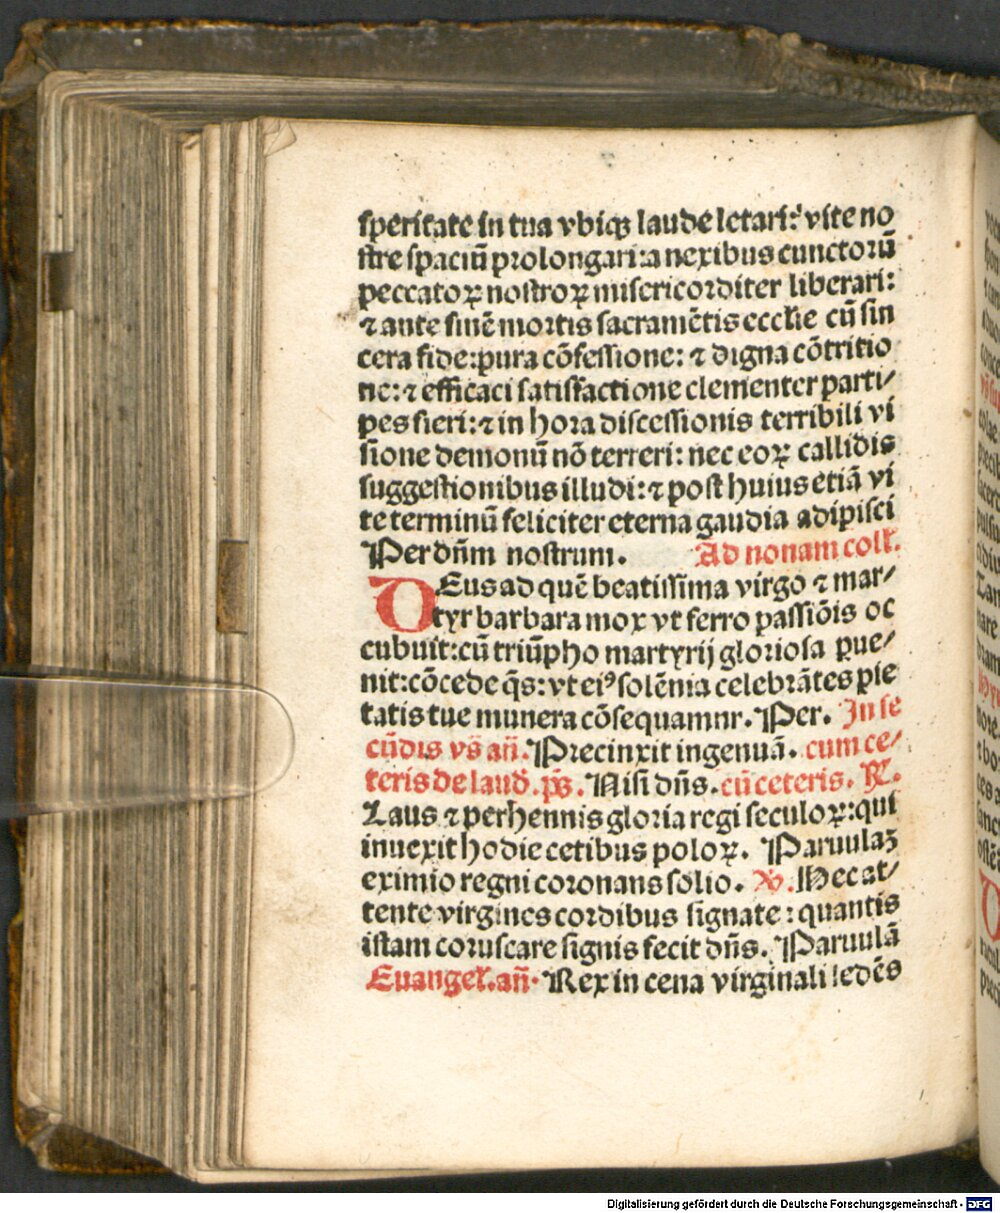 speritate in tua vbiqꝫ laude letari: vite no
stre spaciū prolongari: a nexibus cunctorū
peccatoꝝ nostroꝝ misericorditer liberari:
⁊ ante finē mortis sacramētis ecclie cū sin
cera fide: pura cōfessione: ⁊ digna cōtritio
ne: ⁊ efficaci satisfactione clementer parti⸗
pes fieri: ⁊ in hora discessionis terribili vi
sione demonū nō terreri: nec eoꝝ callidis
suggestionibus illudi: ⁊ post huius etiā vi
te terminū feliciter eterna gaudia adipisci
Per dn̄m nostrum. Ad nonam coll.
DEus ad quē beatissima virgo ⁊ mar⸗
tyr barbara mox vt ferro passiōis oc
cubuit: cū triūpho martyrij gloriosa ꝑue⸗
nit: cōcede q̄s: vt eiꝰ solēnia celebrātes pie
tatis tue munera cōsequamur. Per. In se
cūdis vs̄ an̄. Precinxit ingenuā. cum ce⸗
teris de laud. ps̄. Nisi dn̄s. cū ceteris. ℟.
Laus ⁊ perhennis gloria regi seculoꝝ: qui
inuexit hodie cetibus poloꝝ. Paruulaꝫ
eximio regni coronans solio. ℣. Hec at⸗
tente virgines cordibus signate: quantis
istam coruscare signis fecit dn̄s. Paruulā
Euangel. an̄. Rex in cena virginali ledēs
Digitalisierung gefördert durch die Deutsche Forschungsgemeinschaft - DFG